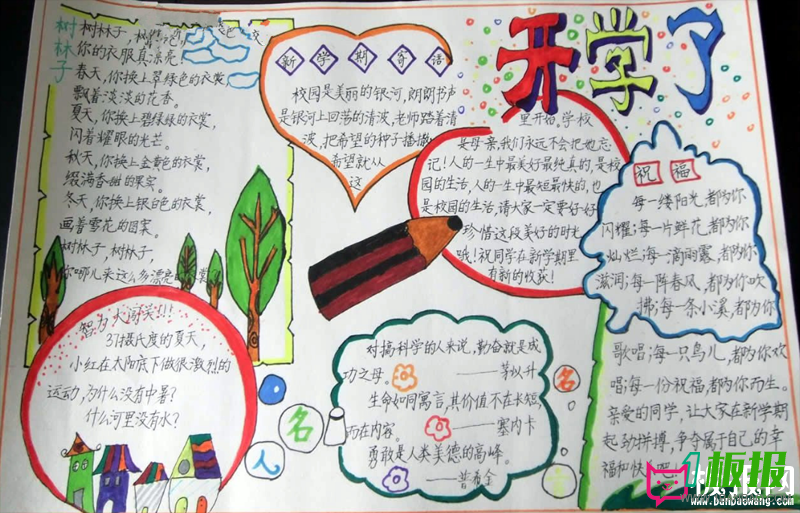 开学了
树林子
树林子，树林子，
你的衣服真漂亮
春天，你换上翠绿色的衣裳，
飘着淡淡的花香。
夏天，你换上碧绿绿的衣裳，
闪着耀眼的光芒。
秋天，你换上金黄色的衣裳，
缀满香甜的果实。
冬天，你换上银白色的衣裳，
画着雪花的图案。
树林子，树林子，
你哪儿来这么多漂亮的衣裳
新学期寄语
校园是美丽的银河，朗朗书声
是银河上回荡的清波，老师踏着清
波，把希望的种子播撒
希望就从
这
里开始。学校
母亲，我们永远不会把她忘
记！人的一生中最美好最纯真的，是校
园的生活，人的一生中最短最快的，也
是校园的生活，请大家一定要好好
珍惜这段美好的时光
哦！祝同学在新学期里
有新的收获！
祝福
每一缕阳光，都为你
闪耀；每一片鲜花，都为你
灿烂；每一滴雨露，都为你
滋润；每一阵春风，都为你吹
拂；每一条小溪，都为你
歌唱；每一只鸟儿，都为你欢
唱；每一份祝福，都为你而生。
亲爱的同学，让大家在新学期
起劲拼搏，争夺属于自己的幸
福和快
智力大闯关！！！
37摄氏度的夏天，
小红在太阳底下做很激烈的
运动，为什么没有中暑？
什么河里没有水？
名人名言
对搞科学的人来说，勤奋就是成
功之母。
——茅以升
生命如同寓言，其价值不在长短，
而在内容。
——塞内卡
勇敢是人类美德的高峰。
——普希金
板报
www.banbaowang.com